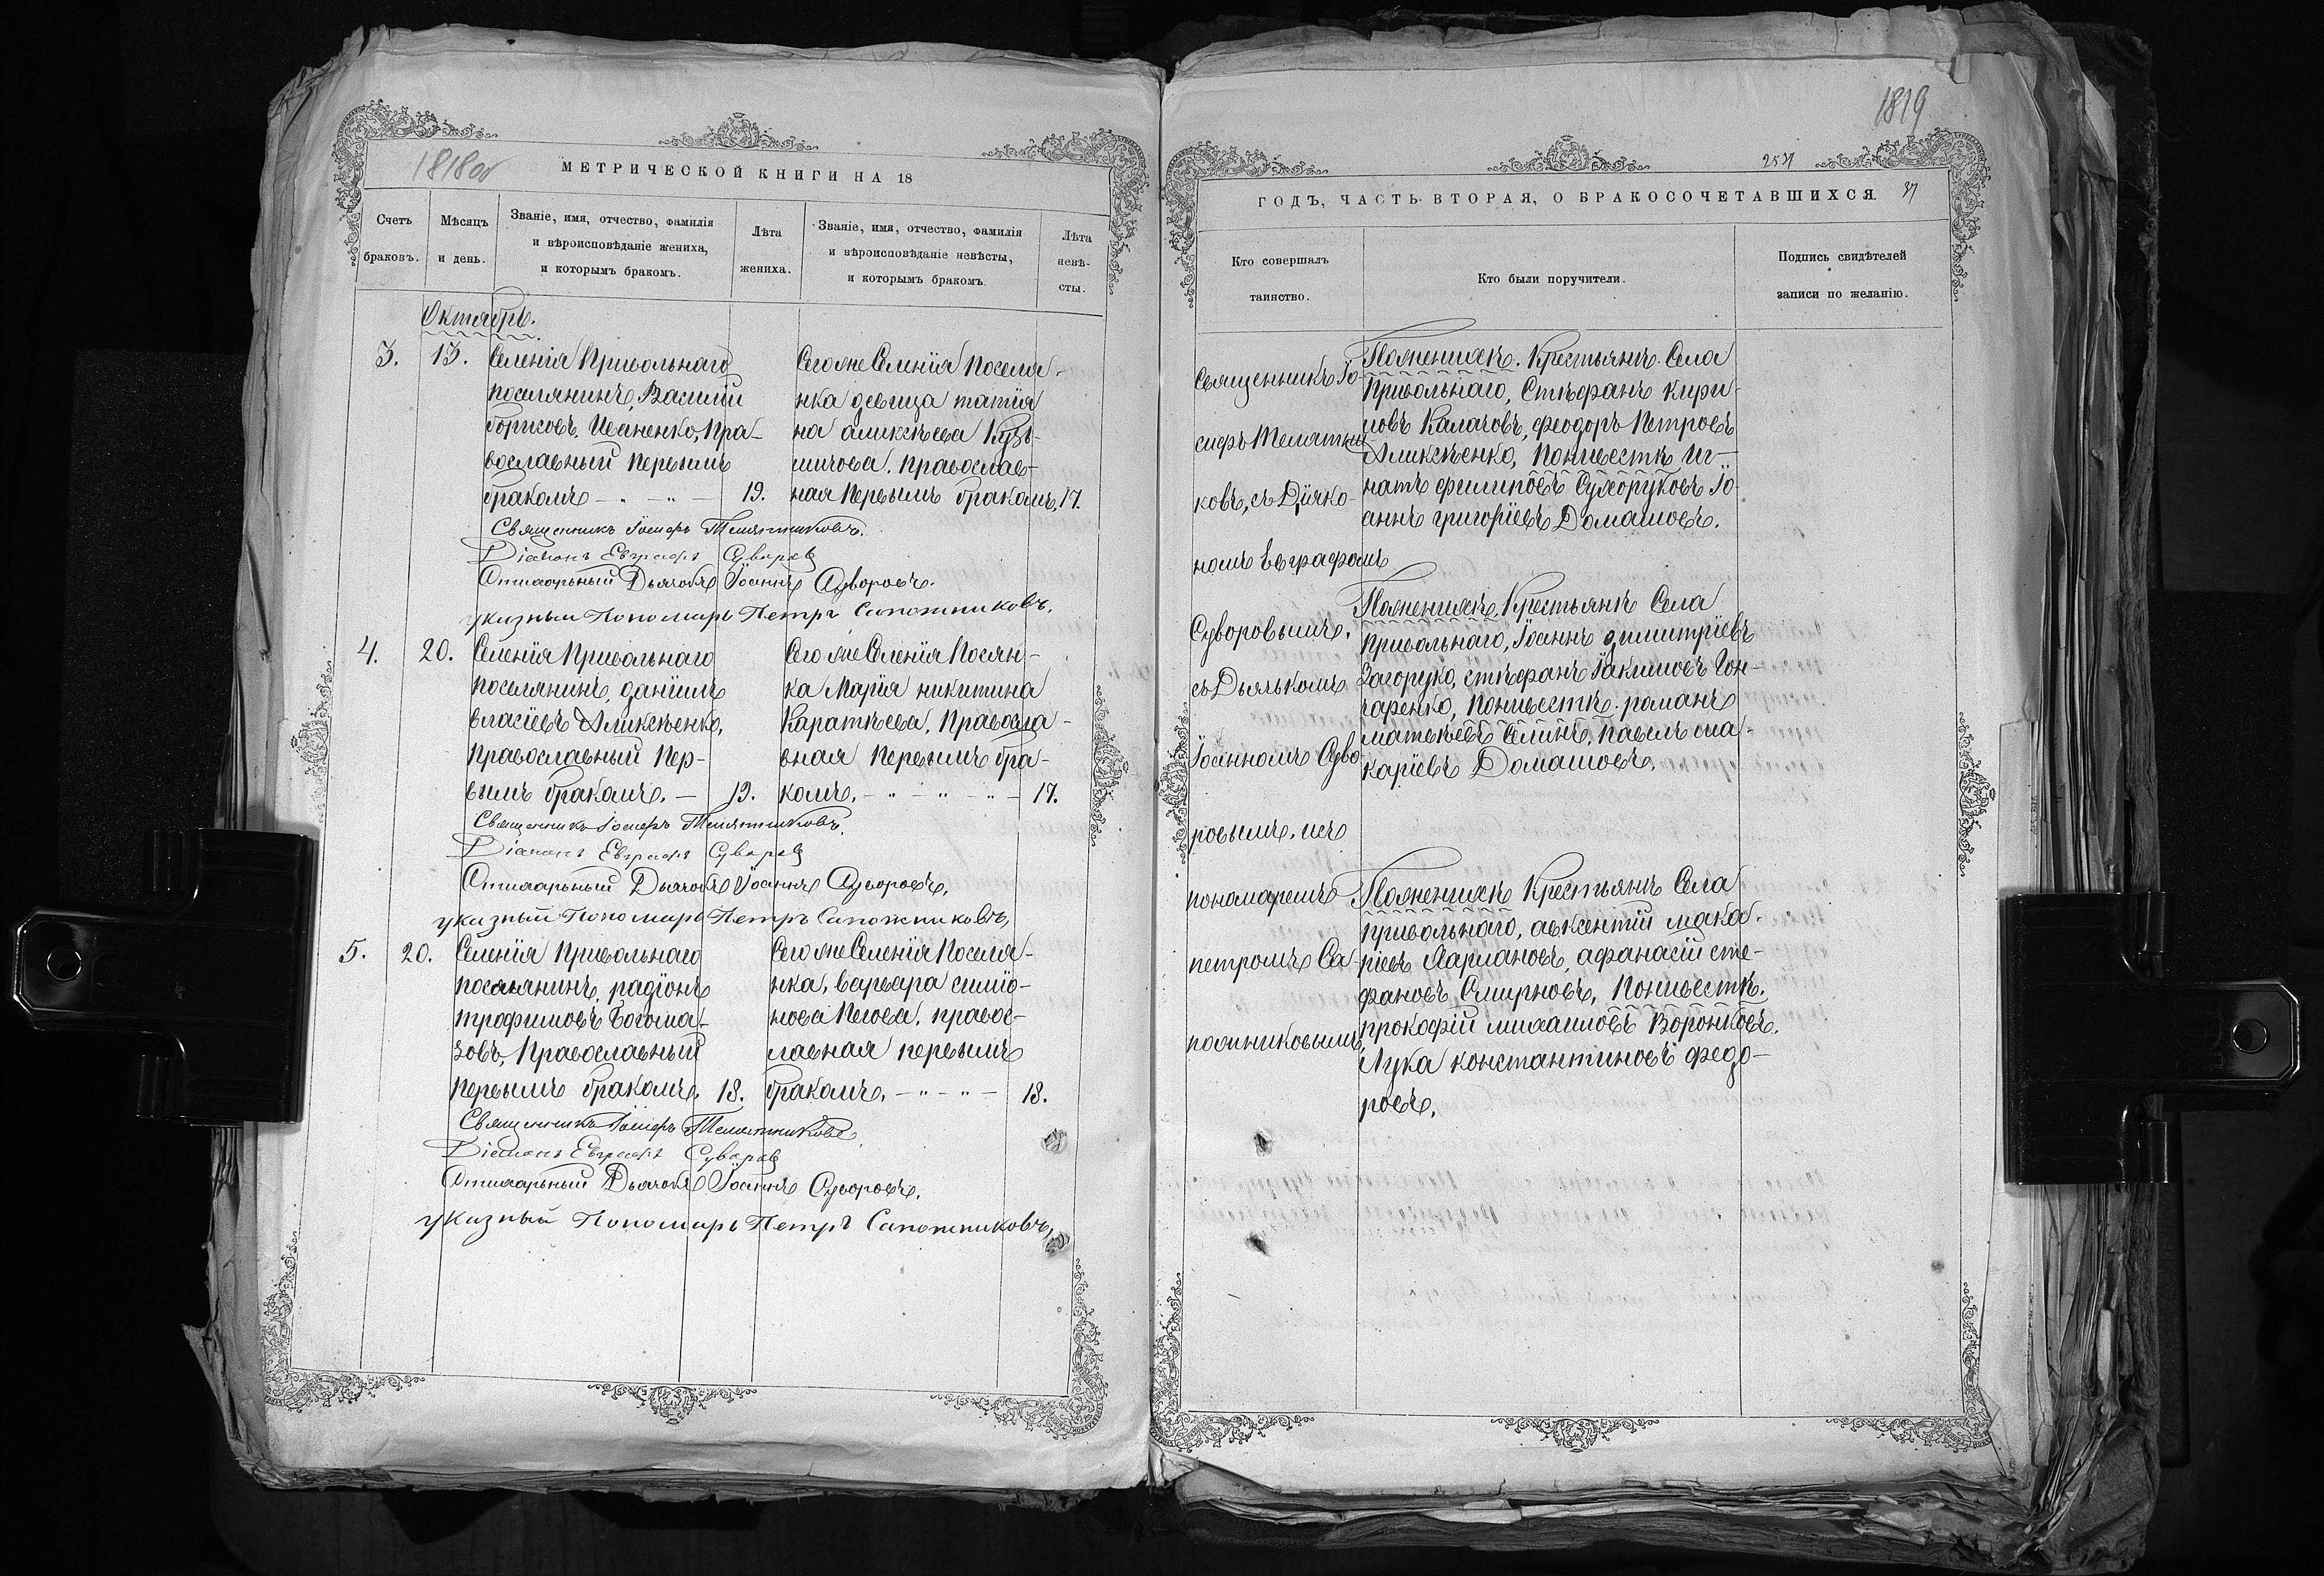 1818об
МЕТРИЧЕСКОЙ КНИГИ НА 18
Счетъ браковъ.
Мѣсяцъ и день.
Званіе, имя, отчество, фамилія
и вѣроисповѣданіе жениха,
и которымъ бракомъ.
Лѣта жениха.
Званіе, имя, отчество, фамилія
и вѣроисповѣданіе невѣсты,
и которымъ бракомъ.
Лѣта невѣ-
сты.
Октябрь.
3. 13. Селенія Привольнаго
поселянинъ, Василій
борисовъ. Иваненко, Пра-
вославный первымъ
бракомъ 19.
Сегоже Селенія Поселя-
нка девица татия
на алексѣева Кузь-
мичова. Православ-
ная первымъ бракомъ, 17.
Священникъ Іосифъ Телятниковъ.
Діаконъ Евграфъ Суворовъ
Дьячокъ Іоаннъ Суворовъ.
указный Пономарь Петръ Сапожниковъ.
4. 20. Селенія Привольнаго
поселянинъ, даніилъ
власіевъ Аликсѣенко,
Православный Пер-
вымъ бракомъ. 19.
Сего же Селенія Посян-
ка Марія никитина
Караткѣева, Правосла-
вная Первымъ бра-
комъ. 17.
Священникъ Іосифъ Телятниковъ.
Діаконъ Евграфъ Суворовъ
Дьячокъ Іоаннъ Суворовъ.
указный Пономарь Петръ Сапожниковъ,
5. 20. Селенія Привольнаго
поселянинъ, радіонъ
трофимовъ Богома-
зовъ, Православный
Первымъ бракомъ. 18.
Сего же Селенія Поселя-
нка, варвара симіо-
нова . правос-
лавная первымъ
бракомъ. 18.
Священникъ Іосифъ Телятниковъ
Діаконъ Евграфъ Суворовъ
Дьячокъ Іоаннъ Суворовъ.
указный Пономарь Петръ Сапожниковъ,
1819
ГОДЪ, ЧАСТЬ ВТОРАЯ, О БРАКОСОЧЕТАВШИХСЯ.
37
Кто совершалъ
таинство.
Кто были поручители.
Подпись свидѣтелей
записи по желанію.
Священникъ Іо-
сифъ Телятни
ковъ, съ Діяко-
номъ Евграфомъ
Суворовымъ,
съ Дьячькомъ
Іоанномъ Суво
ровымъ, и съ
пономаремъ
петромъ Са-
пожниковымъ
По женихѣ. Крестьянъ Села
Привольнаго, Стѣфанъ кири-
ловъ Калачовъ, феодоръ Петровъ
Аликсѣенко, По нивестѣ Иг-
натъ филиповъ Сухоруковъ Іо-
аннъ григоріевъ Домашовъ.
По женихѣ, Крестьянъ Села
привольнаго, Іоаннъ димитріевъ
Загоруко, стѣфанъ Іакимовъ Гон-
чаренко, По нивестѣ. романъ
матвѣевъ Селинъ. Павелъ ма-
каріевъ Домашовъ.
По женихѣ Крестьянъ Села
привольнаго, авксентій мака-
ріевъ , афанасій сте-
фановъ Смирновъ, По нивестѣ.
прокофій михаиловъ Воронковъ.
Лука константиновъ федо-
ровъ.